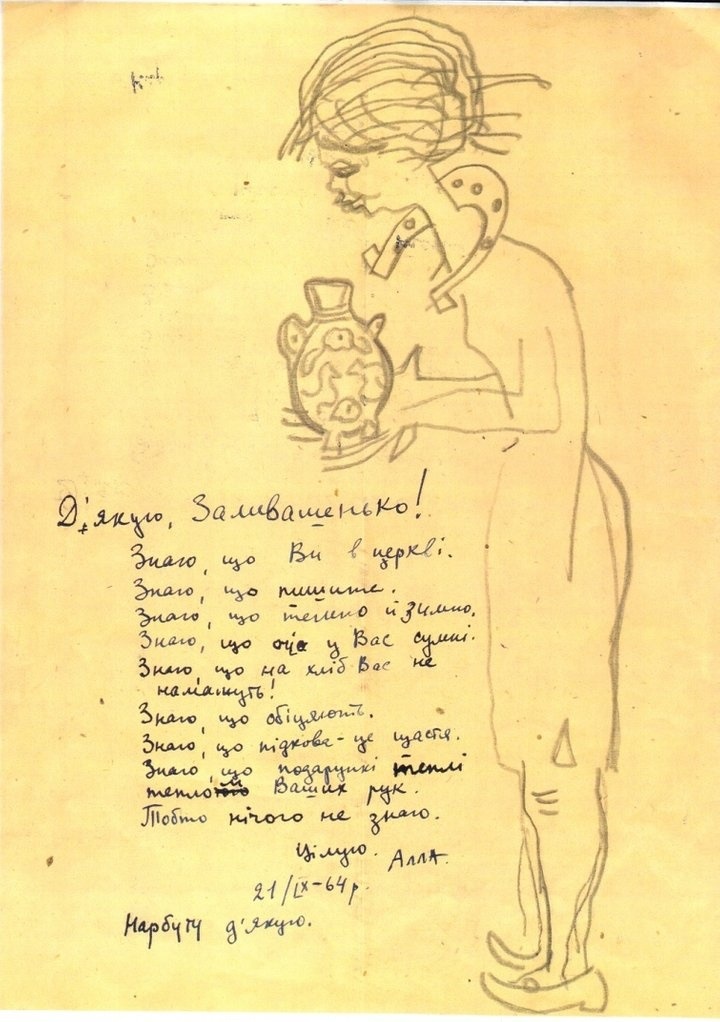 Д'якую, Заливашенько!
Знаю, що Ви в церкві.
Знаю, що пишите.
Знаю, що темно й зимно.
Знаю, що очі у Вас сумні.
Знаю, що на хліб Вас не
намажуть!
Знаю, що обіцяють.
Знаю, що підкова - це щастя.
Знаю, що подарунки теплі
теплом Ваших рук.
Тобто нічого не знаю.
Цілую. Алла.
21/IX-64 р.
Нарбуту д'якую.